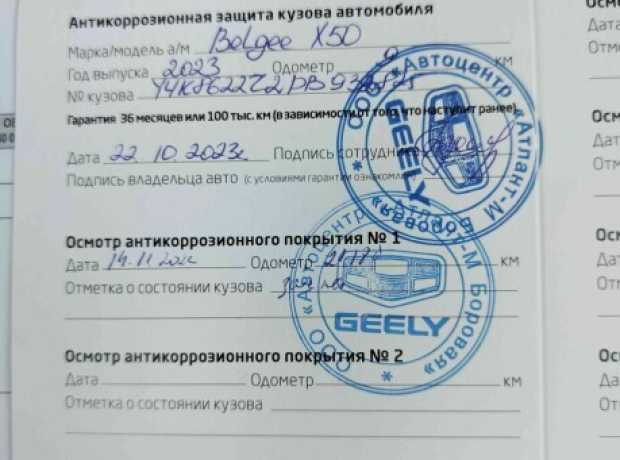 Антикоррозионная защита кузова автомобиля
Марка/модель а/м Belgee X50
Год выпуска 2023 Одометр 9 км
№ кузова
Гарантия 36 месяцев или 100 тыс. км (в зависимости от того, что наступит ранее)
Дата 22.10.2023г Подпись сотрудника
Подпись владельца авто (с условиями гарантии ознакомлен)
Осмотр антикоррозионного покрытия № 1
Дата Одометр км
Отметка о состоянии кузова
Осмотр антикоррозионного покрытия № 2
Дата Одометр км
Отметка о состоянии кузова
ООО «Автоцентр «Атлант-М Боровая»
GEELY
ООО «Автоцентр «Атлант-М Боровая»
GEELY